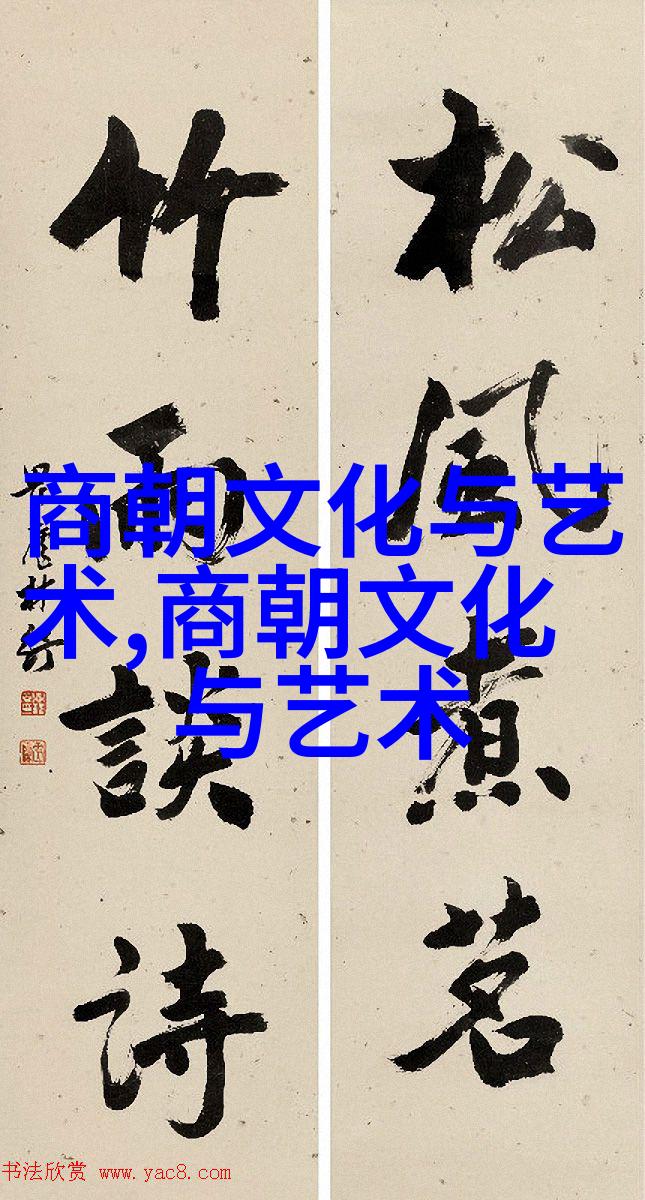 松風煮茗
竹雨談詩
商朝文化与艺
术,商朝文化
与艺术
书法欣赏 www.yac8.com